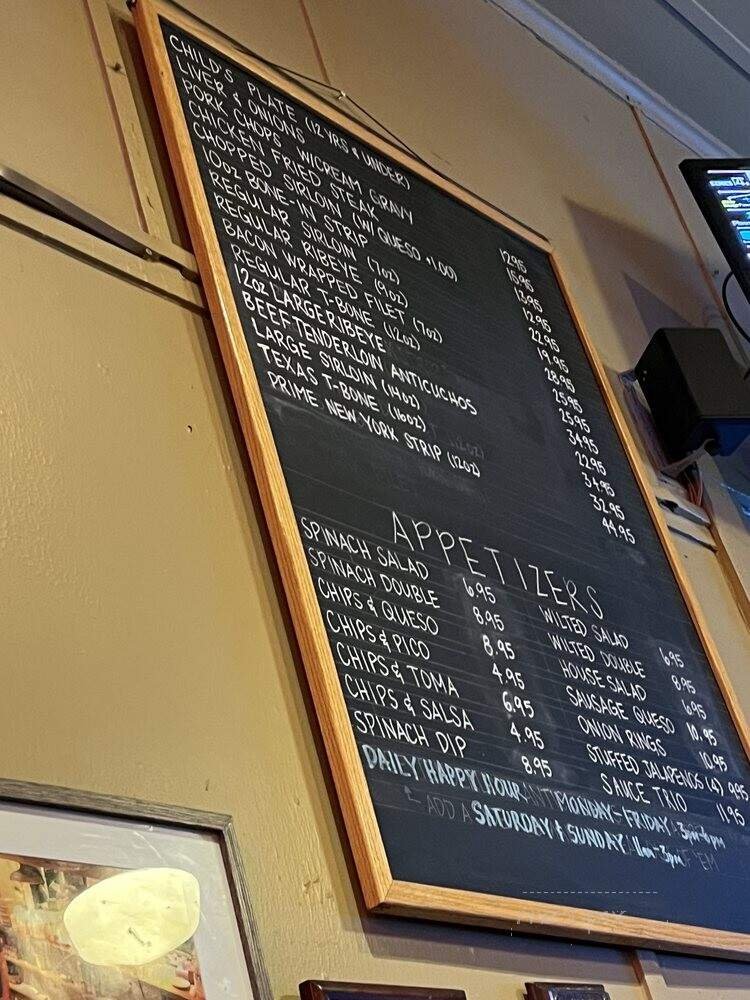 CHILD'S PLATE (12 YRS & UNDER)
LIVER & ONIONS
PORK CHOPS W/CREAM GRAVY
CHICKEN FRIED STEAK
CHOPPED SIRLOIN (W/ QUESO +1.00)
10oz BONE-IN STRIP
REGULAR SIRLOIN (7oz)
REGULAR RIBEYE (9oz)
BACON WRAPPED FILET (7oz)
REGULAR T-BONE (12oz)
12oz LARGE RIBEYE
BEEF TENDERLOIN ANTICUCHOS
LARGE SIRLOIN (14oz)
TEXAS T-BONE (16oz)
PRIME NEW YORK STRIP (12oz)
12.95
15.95
13.95
12.95
22.95
19.95
28.95
25.95
25.95
34.95
22.95
34.95
32.95
44.95
APPETIZERS
SPINACH SALAD 6.95
SPINACH DOUBLE 8.95
CHIPS & QUESO 8.95
CHIPS & PICO 4.95
CHIPS & TOMA 6.95
CHIPS & SALSA 4.95
SPINACH DIP 8.95
WILTED SALAD 6.95
WILTED DOUBLE 8.95
HOUSE SALAD 6.95
SAUSAGE QUESO 10.95
ONION RINGS 10.95
STUFFED JALAPENOS (4) 9.95
SAUCE TRIO 11.95
DAILY HAPPY HOUR MONDAY-FRIDAY 3pm-6pm
SATURDAY & SUNDAY 11am-3pm